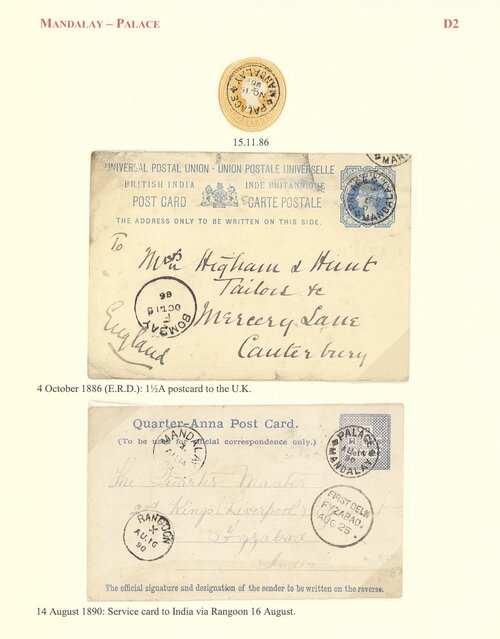 MANDALAY – PALACE
D2
PALACE
MANDALAY
NO 15
86
15.11.86
UNIVERSAL POSTAL UNION - UNION POSTALE UNIVERSELLE
BRITISH INDIA INDE BRITANNIQUE
POST CARD CARTE POSTALE
THE ADDRESS ONLY TO BE WRITTEN ON THIS SIDE.
MANDALAY
To
Higham & Hunt
Tailors &c
Mercery Lane
Canterbury
England
BOMBAY
OC 18
86
4 October 1886 (E.R.D.): 1½A postcard to the U.K.
Quarter-Anna Post Card.
(To be used for official correspondence only.)
MANDALAY
PALACE
MANDALAY
AU 14
90
The Quarter Master
2nd Kings Liverpool
Fyzabad
FIRST DEL
FYZABAD.
AUG 25
RANGOON
X
AU 16
90
The official signature and designation of the sender to be written on the reverse.
14 August 1890: Service card to India via Rangoon 16 August.